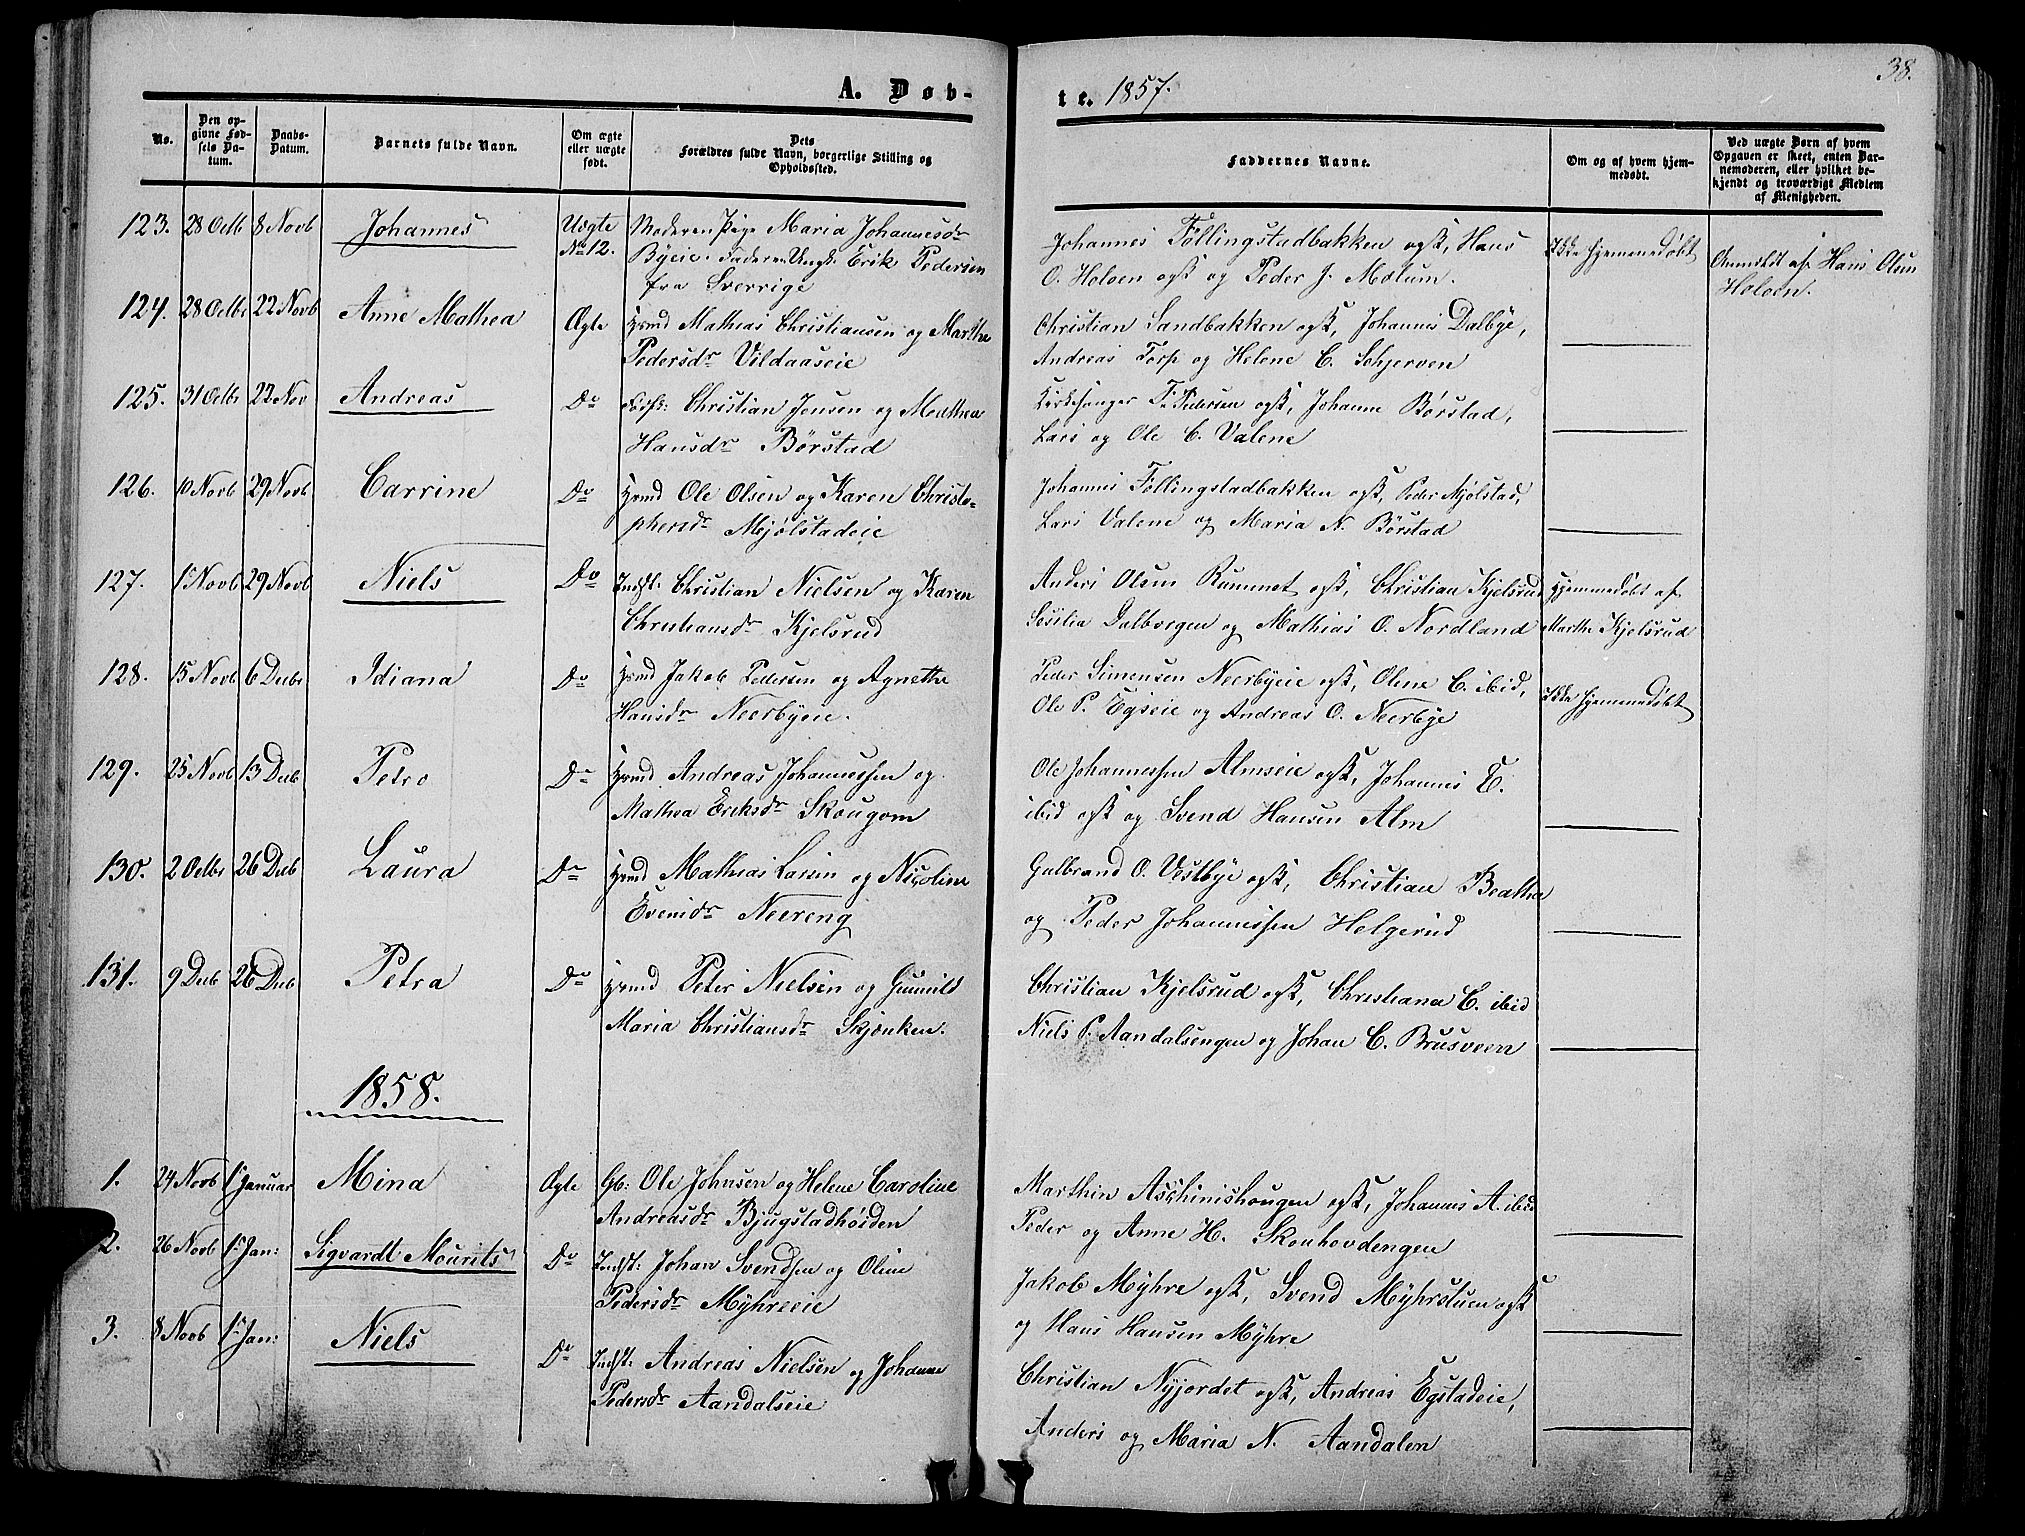 38.
A. Døb-
te. 1857.
No.
Den op-
givne Fød-
sels Da-
tum.
Daabs-
Datum.
Barnets fulde Navn.
Om ægte
eller uægte
født.
Dets
Forældres fulde Navn, borgerlige Stilling og
Opholdssted.
Faddernes Navne.
Om og af hvem hjem-
medøbt.
Ved uægte Børn af hvem
Opgaven er skeet, enten Bar-
nemoderen, eller hvilket be-
kjendt og troværdigt Medlem
af Menigheden.
123. 28 Octb 8 Novb Johannes Uægte Moderen Pige Maria Johannesdr
No 12. Byeie. Faderen Ungk. Erik Pedersen
fra Sverrige
Johannes Föllingstadbakken ogsk, Hans
O. Holoen ogsk og Peder J. Mælum.
Ikke hjemmedøbt
Anmeldt af Hans Olsen
Holoen.
124. 28 Octbr 22 Novb Anne Mathea Ægte Hmd Mathias Christiansen og Marthe
Pedersdr Vildaaseie
Christian Sandbakken ogsk, Johannes Dalbye,
Andreas Torp og Helene C. Schjerven
125. 31 Octbr 22 Nov Andreas Do Christian Jensen og Mathea
Hansdr Börstad
Kirkesanger F. Pedersen ogsk, Johanne Börstad,
Lars og Ole C. Valene
126. 10 Novb 29 Novb Carrine Do Hmd Ole Olsen og Karen Christo-
phersdr Mjölstadeie
Johannes Föllingstadbakken ogsk, Peder Mjölstad,
Lars Valene og Maria N. Börstad
127. 1 Novb 29 Novb Niels Do Indst: Christian Nielsen og Karen
Christiansdr Kjelsrud
Anders Olsen Rammet ogsk, Christian Kjelsrud
Sesilia Dalbvegen og Mathias O. Nordland
Hjemmedøbt af
Marthe Kjelsrud
128. 15 Novb 6 Decbr Idiana Do Hmd Jakob Pedersen og Agnethe
Hansdr Neerbyeie.
Peder Simensen Neerbyeie ogsk, Olene C. ibid,
Ole P. Egseie og Andreas O. Neerbye
Ikke hjemmedøbt
129. 25 Novb 13 Decb Petro Do Hmd Andreas Johannessen og
Mathea Eriksdr Skougom
Ole Johannessen Almseie ogsk, Johannes E.
ibid ogsk og Svend Hansen Alm
130. 2 Octbr 26 Decb Laura Do Hmd Mathias Larsen og Nicoline
Evensdr Neereng
Gulbrand O. Vestbye ogsk, Christian Beathe
og Peder Johannessen Helgerud
131. 9 Decb 26 Decb Petra Do Hmd Peter Nielsen og Gunnild
Maria Christiansdr Skjönken.
Christian Kjelsrud ogsk, Christiane C. ibid
Niels P. Aandalsengen og Johan C. Brusveen
1858.
1. 24 Novb 1 Januar Mina Ægte Gb: Ole Johnsen og Helene Caroline
Andreasdr Bjugstadhöiden
Marthin Aschinshougen ogsk, Johannes A. ibid
Peder og Anne H. Skouhovdengen
2. 26 Novb 1 Jan: Sigvardt Mourits Do Indst: Johan Svendsen og Oline
Pedersdr Myhreeie
Jakob Myhre ogsk, Svend Myhrstuen ogsk
og Hans Hansen Myhre
3. 8 Novb 1 Jan: Niels Do Indst: Andreas Nielsen og Johanne
Pedersdr Aandalseie
Christian Nyjordet ogsk, Andreas Egstadeie,
Anders og Maria N. Aandalen